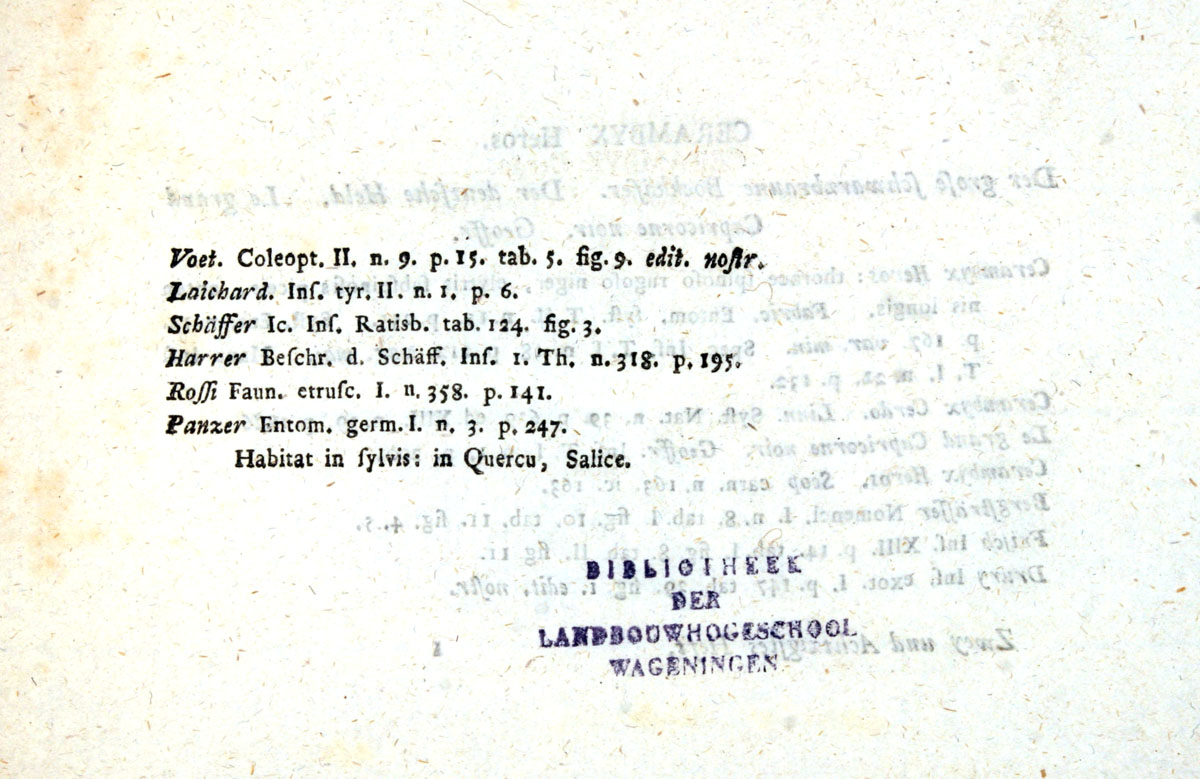 Voet. Coleopt. II. n. 9. p. 15. tab. 5. fig. 9. edit. noſtr.
Laichard. Inſ. tyr. II. n. 1. p. 6.
Schäffer Ic. Inſ. Ratisb. tab. 124. fig. 3.
Harrer Beſchr. d. Schäff. Inſ. 1. Th. n. 318. p. 195.
Roſſi Faun. etruſc. I. n. 358. p. 141.
Panzer Entom. germ. I. n. 3. p. 247.
Habitat in ſylvis: in Quercu, Salice.
BIBLIOTHEEK
DER
LANDBOUWHOGESCHOOL
WAGENINGEN